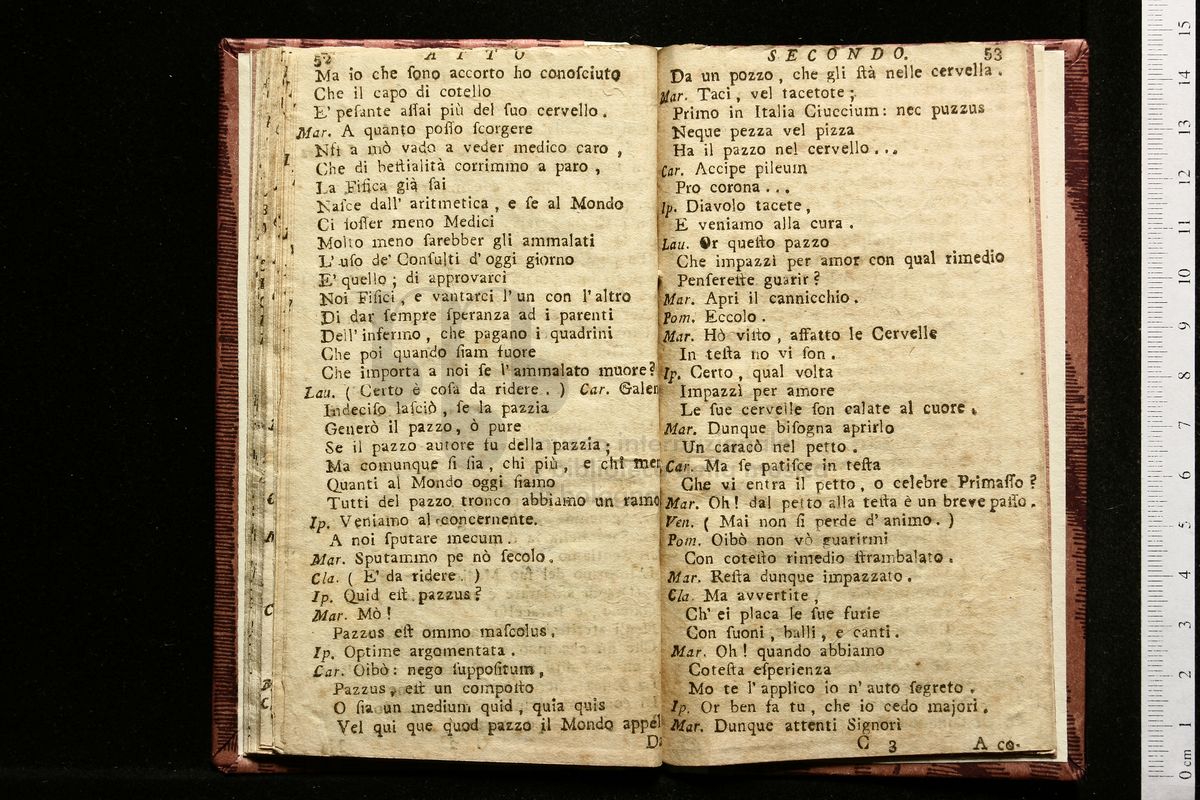 52 ATTO
Ma io che ſono accorto ho conoſciuto
Che il capo di cotello
E' peſante aſſai più del ſuo cervello.
Mar. A quanto poſſo ſcorgere
Nfi a mò vado a veder medico caro,
Che di beſtialità corrimmo a paro,
La Fiſica già ſai
Naſce dall' aritmetica, e ſe al Mondo
Ci foſſer meno Medici
Molto meno ſarebber gli ammalati
L' uſo de' Conſulti d' oggi giorno
E' quello; di approvarci
Noi Fiſici, e vantarci l' un con l' altro
Di dar ſempre ſperanza ad i parenti
Dell' infermo, che pagano i quadrini
Che poi quando ſiam fuore
Che importa a noi ſe l' ammalato muore?
Lau. ( Certo è coſa da ridere. ) Car. Galen
Indeciſo laſciò, ſe la pazzia
Generò il pazzo, ò pure
Se il pazzo autore fu della pazzia;
Ma comunque ſi ſia, chi più, e chi men
Quanti al Mondo oggi ſiamo
Tutti del pazzo tronco abbiamo un ramo
Ip. Veniamo al concernente.
A noi ſputare mecum.
Mar. Sputammo pe nò ſecolo.
Cla. ( E' da ridere. )
Ip. Quid eſt pazzus?
Mar. Mò!
Pazzus eſt ommo maſcolus.
Ip. Optime argomentata.
Car. Oibò: nego ſuppoſitum,
Pazzus, eſt un compoſto
O ſia un medium quid, quia quis
Vel qui que quod pazzo il Mondo appel
Da
SECONDO. 53
Da un pozzo, che gli ſtà nelle cervella.
Mar. Taci, vel tacetote;
Primo in Italia Ciuccium: nec puzzus
Neque pezza vel pizza
Ha il pazzo nel cervello...
Car. Accipe pileum
Pro corona...
Ip. Diavolo tacete,
E veniamo alla cura.
Lau. Or queſto pazzo
Che impazzì per amor con qual rimedio
Penſereſte guarir?
Mar. Apri il cannicchio.
Pom. Eccolo.
Mar. Hò viſto, affatto le Cervelle
In teſta no vi ſon.
Ip. Certo, qual volta
Impazzì per amore
Le ſue cervelle ſon calate al cuore.
Mar. Dunque biſogna aprirlo
Un caracò nel petto.
Car. Ma ſe patiſce in teſta
Che vi entra il petto, o celebre Primaſſo?
Mar. Oh! dal petto alla teſta è un breve paſſo.
Ven. ( Mai non ſi perde d' animo. )
Pom. Oibò non vò guarirmi
Con coteſto rimedio ſtrambalato.
Mar. Reſta dunque impazzato.
Cla. Ma avvertite,
Ch' ei placa le ſue furie
Con ſuoni, balli, e canti.
Mar. Oh! quando abbiamo
Coteſta eſperienza
Mo te l' applico io n' auto ſegreto.
Ip. Or ben fa tu, che io cedo majori.
Mar. Dunque attenti Signori
C 3 A co-